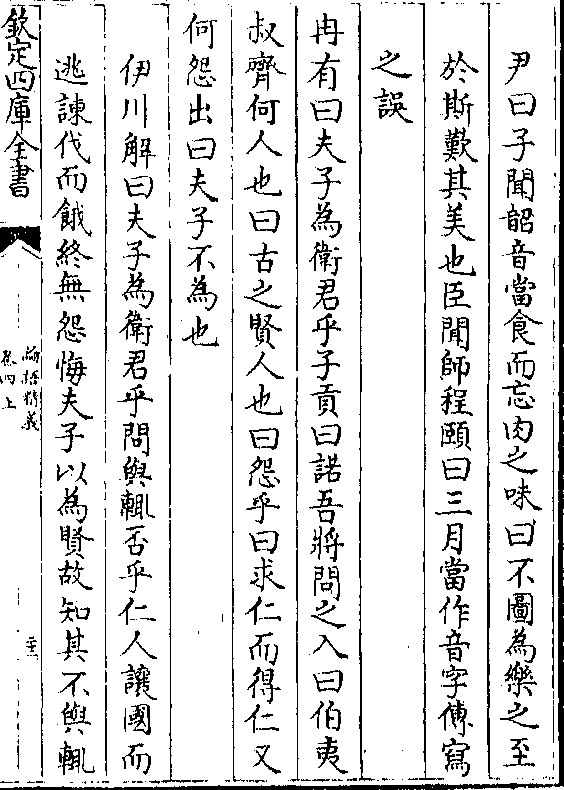 尹曰子聞韶音當食而忘肉之味曰不圖為樂之至
於斯歎其美也臣聞師程頤曰三月當作音字傳寫
之誤
冉有曰夫子為衛君乎子貢曰諾吾將問之入曰伯夷
叔齊何人也曰古之賢人也曰怨乎曰求仁而得仁又
何怨出曰夫子不為也
伊川解曰夫子為衛君乎問與輒否乎仁人讓國而
逃諫伐而餓終無怨悔夫子以為賢故知其不與輒
欽定四庫全書
論語精義
卷四上